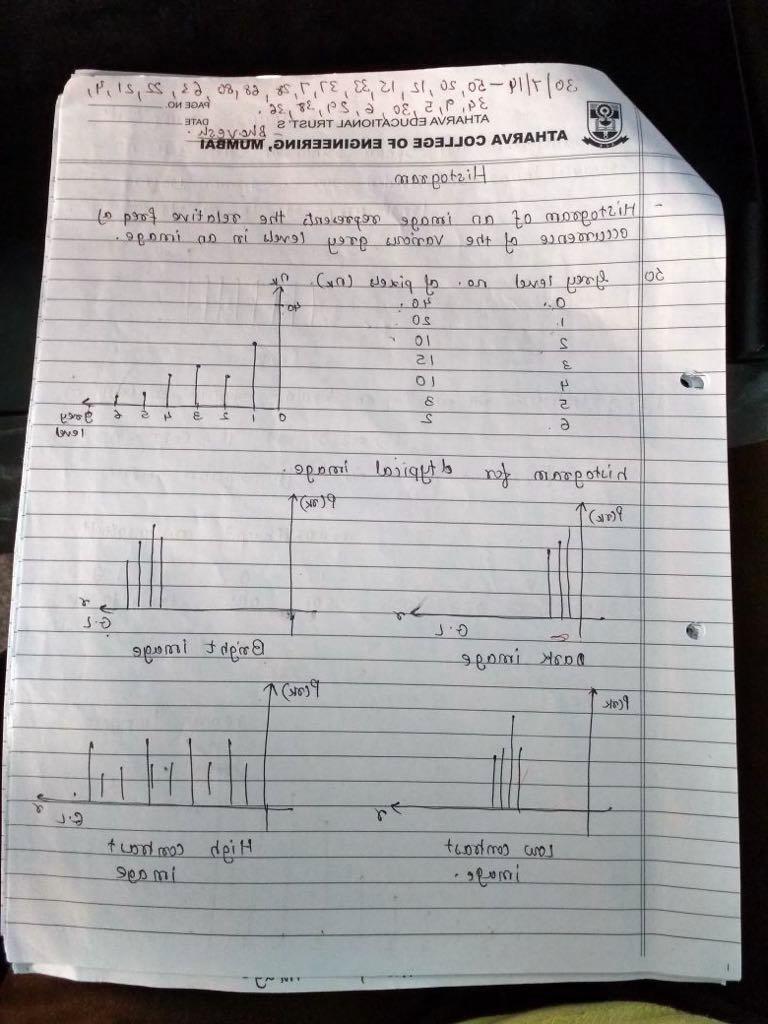 30/7/19 – 50, 20, 12, 15, 33, 37, 7, 28, 68, 80, 63, 22, 21, 4,
34, 9, 5, 30, 6, 29, 38, 36.
PAGE NO.
ATHARVA EDUCATIONAL TRUST'S
DATE
ATHARVA COLLEGE OF ENGINEERING, MUMBAI
- Bhavesh.
Histogram
- Histogram of an image represents the relative freq of
occurrence of the various grey levels in an image.
50
Grey level no. of pixels (nk).
0 40
1 20
2 10
3 15
4 10
5 3
6 2
nk
40
0 1 2 3 4 5 6 grey
level
histogram for typical image.
P(rk)
r
G.L
Dark image
P(rk)
r
G.L
Bright image
P(rk
r
Low contrast
image.
P(rk)
r
G.L
High contrast
image